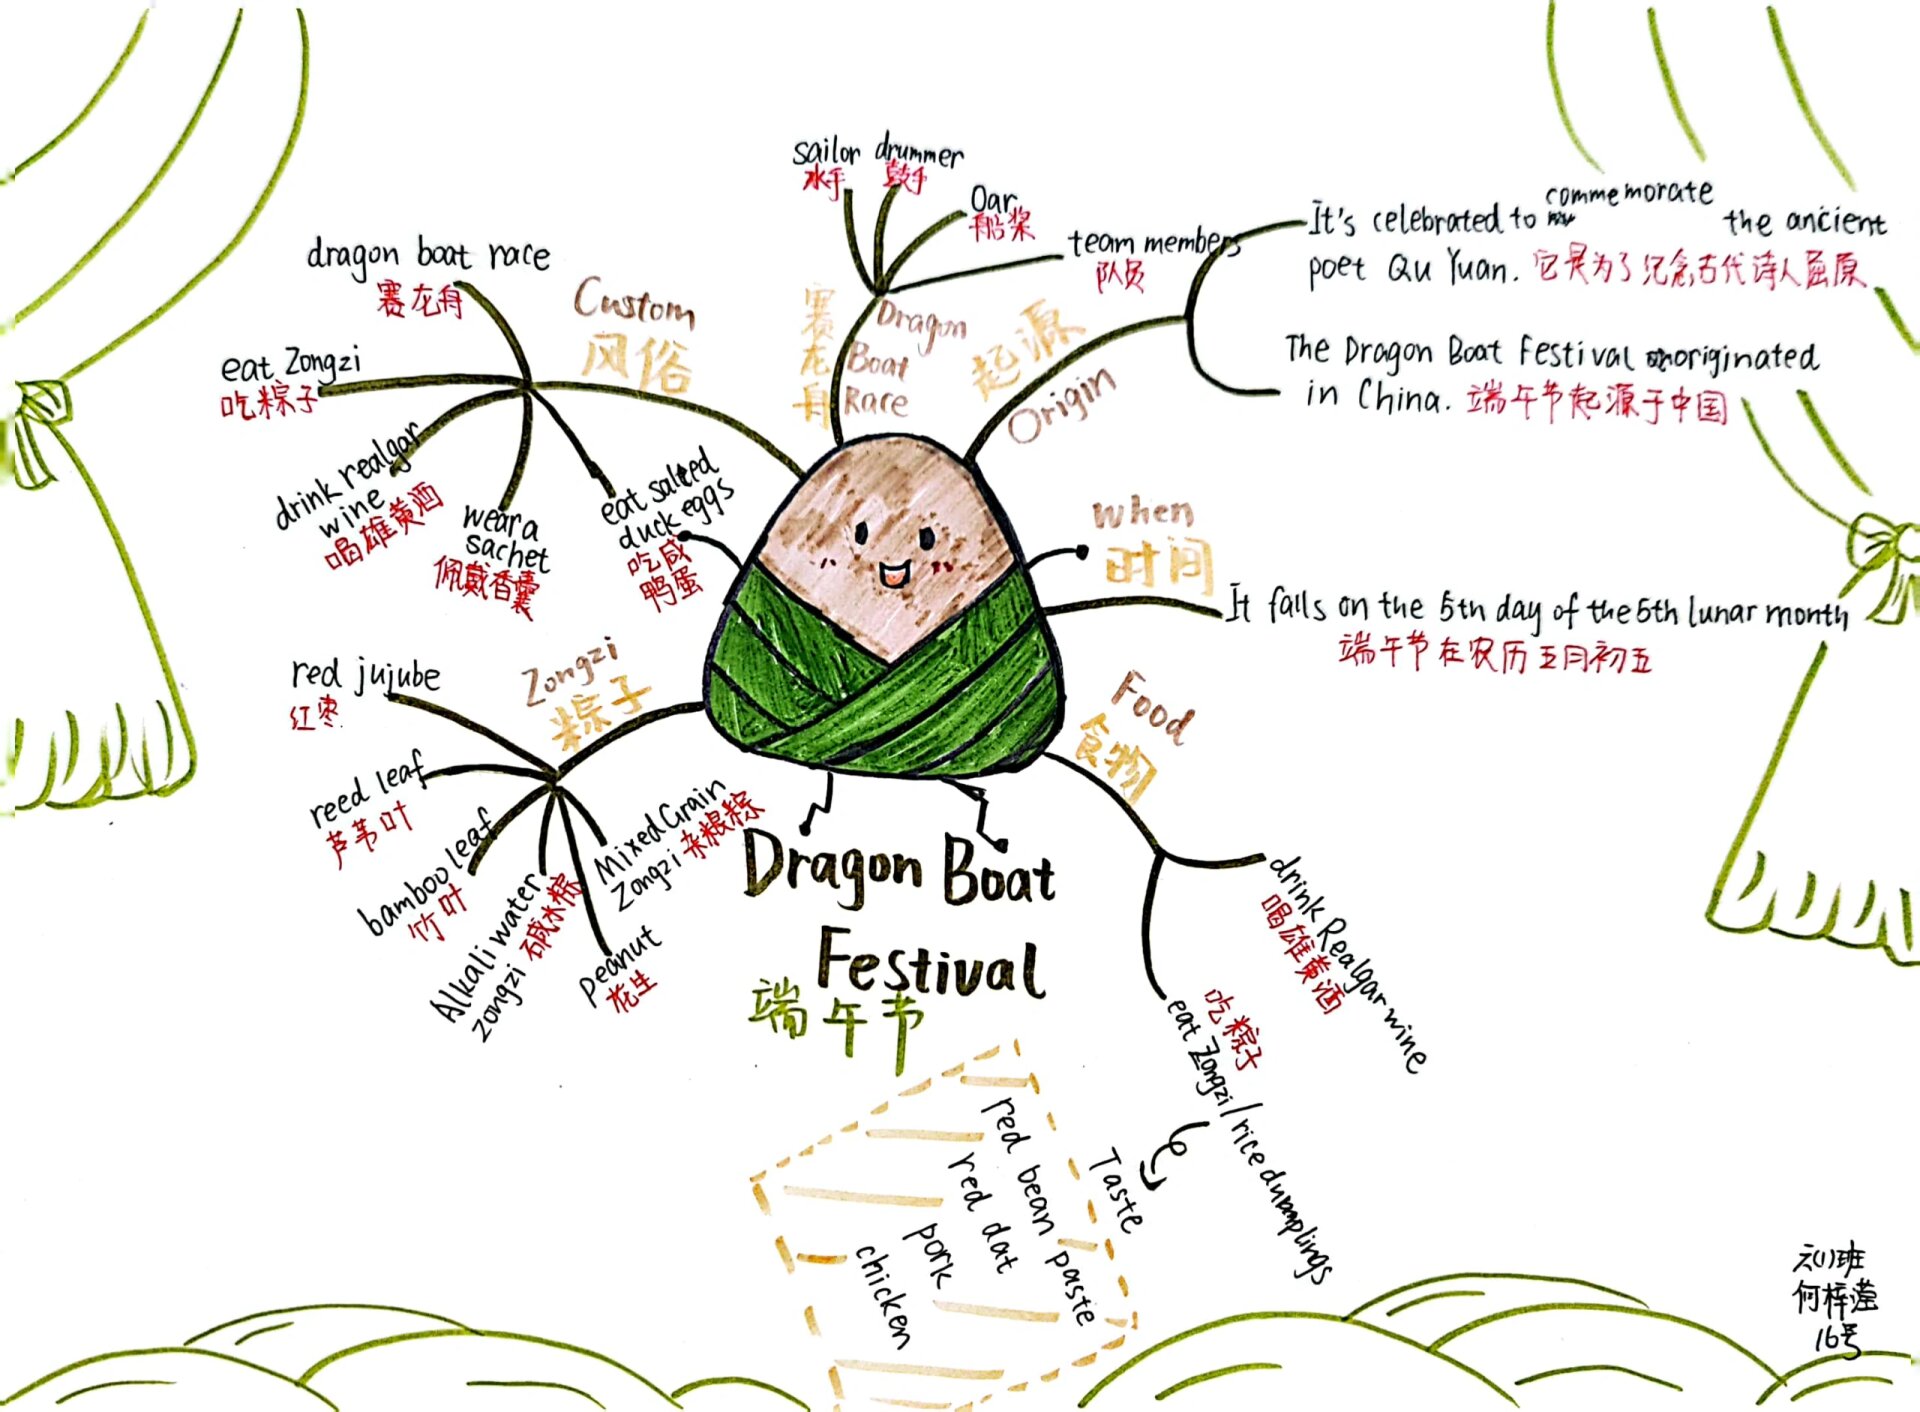 sailor drummer
水手 鼓手
Oar
船桨
team members
队员
赛龙舟
Dragon
Boat
Race
dragon boat race
赛龙舟
Custom
风俗
eat Zongzi
吃粽子
drink realgar
wine
喝雄黄酒
wear a
sachet
佩戴香囊
eat salted
duck eggs
吃咸
鸭蛋
起源
Origin
It's celebrated to commemorate the ancient
poet Qu Yuan. 它是为了纪念古代诗人屈原
The Dragon Boat Festival originated
in China. 端午节起源于中国
when
时间
It falls on the 5th day of the 5th lunar month
端午节在农历五月初五
Zongzi
粽子
red jujube
红枣
reed leaf
芦苇叶
bamboo leaf
竹叶
Alkali water
zongzi 碱水粽
peanut
花生
Mixed Grain
Zongzi 杂粮粽
Food
食物
drink Realgar wine
喝雄黄酒
吃粽子
eat Zongzi/rice dumplings
Taste
red bean paste
red dat
pork
chicken
Dragon Boat
Festival
端午节
六(1)班
何梓滢
16号